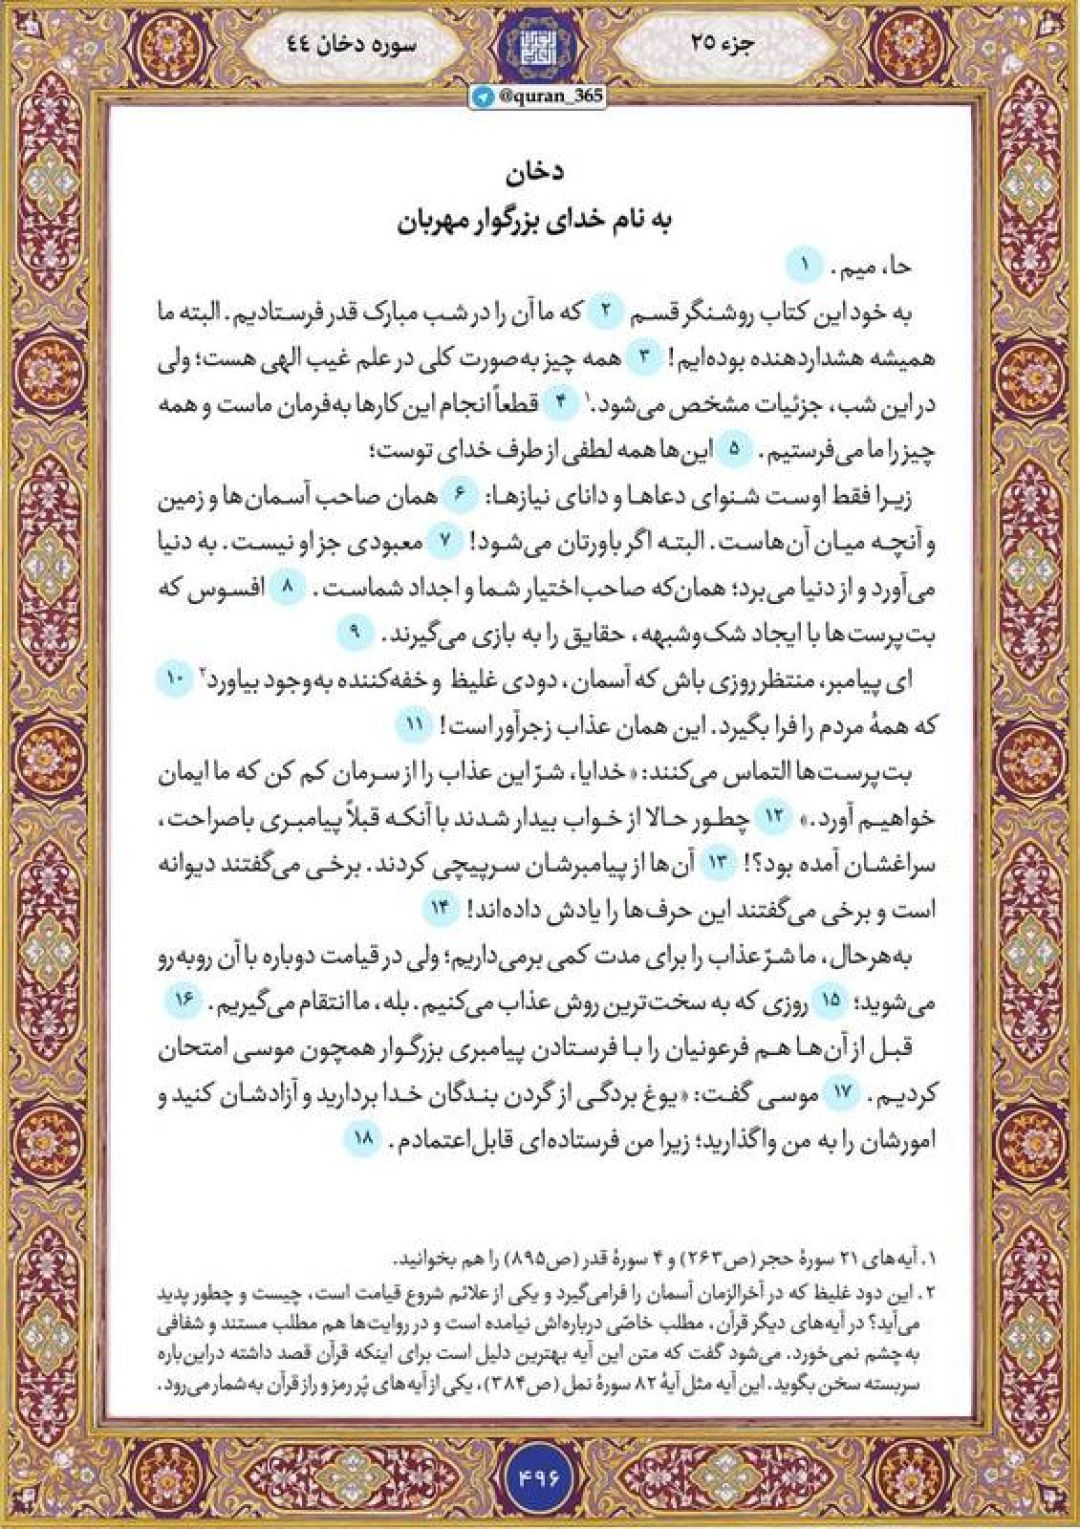 جزء ۲۵
سوره دخان ۴۴
@quran_365
دخان
به نام خدای بزرگوار مهربان
حا، میم. ۱
به خود این کتاب روشنگر قسم ۲ که ما آن را در شب مبارک قدر فرستادیم. البته ما
همیشه هشداردهنده بوده‌ایم! ۳ همه چیز به‌صورت کلی در علم غیب الهی هست؛ ولی
در این شب، جزئیات مشخص می‌شود.۱ ۴ قطعاً انجام این کارها به‌فرمان ماست و همه
چیز را ما می‌فرستیم. ۵ این‌ها همه لطفی از طرف خدای توست؛
زیرا فقط اوست شنوای دعاها و دانای نیازها: ۶ همان صاحب آسمان‌ها و زمین
و آنچه میان آن‌هاست. البته اگر باورتان می‌شود! ۷ معبودی جز او نیست. به دنیا
می‌آورد و از دنیا می‌برد؛ همان‌که صاحب‌اختیار شما و اجداد شماست. ۸ افسوس که
بت‌پرست‌ها با ایجاد شک‌وشبهه، حقایق را به بازی می‌گیرند. ۹
ای پیامبر، منتظر روزی باش که آسمان، دودی غلیظ و خفه‌کننده به‌وجود بیاورد۲ ۱۰
که همهٔ مردم را فرا بگیرد. این همان عذاب زجرآور است! ۱۱
بت‌پرست‌ها التماس می‌کنند: «خدایا، شرّ این عذاب را از سرمان کم کن که ما ایمان
خواهیم آورد.» ۱۲ چطور حالا از خواب بیدار شدند با آنکه قبلاً پیامبری باصراحت،
سراغشان آمده بود؟! ۱۳ آن‌ها از پیامبرشان سرپیچی کردند. برخی می‌گفتند دیوانه
است و برخی می‌گفتند این حرف‌ها را یادش داده‌اند! ۱۴
به‌هرحال، ما شرّ عذاب را برای مدت کمی برمی‌داریم؛ ولی در قیامت دوباره با آن روبه‌رو
می‌شوید؛ ۱۵ روزی که به سخت‌ترین روش عذاب می‌کنیم. بله، ما انتقام می‌گیریم. ۱۶
قبل از آن‌ها هم فرعونیان را با فرستادن پیامبری بزرگوار همچون موسی امتحان
کردیم. ۱۷ موسی گفت: «یوغ بردگی از گردن بندگان خدا بردارید و آزادشان کنید و
امورشان را به من واگذارید؛ زیرا من فرستاده‌ای قابل‌اعتمادم. ۱۸
۱. آیه‌های ۲۱ سورهٔ حجر (ص۲۶۳) و ۴ سورهٔ قدر (ص۸۹۵) را هم بخوانید.
۲. این دود غلیظ که در آخرالزمان آسمان را فرامی‌گیرد و یکی از علائم شروع قیامت است، چیست و چطور پدید
می‌آید؟ در آیه‌های دیگر قرآن، مطلب خاصّی درباره‌اش نیامده است و در روایت‌ها هم مطلب مستند و شفافی
به‌چشم نمی‌خورد. می‌شود گفت که متن این آیه بهترین دلیل است برای اینکه قرآن قصد داشته دراین‌باره
سربسته سخن بگوید. این آیه مثل آیهٔ ۸۲ سورهٔ نمل (ص۳۸۴)، یکی از آیه‌های پُر رمز و راز قرآن به‌شمار می‌رود.
۴۹۶